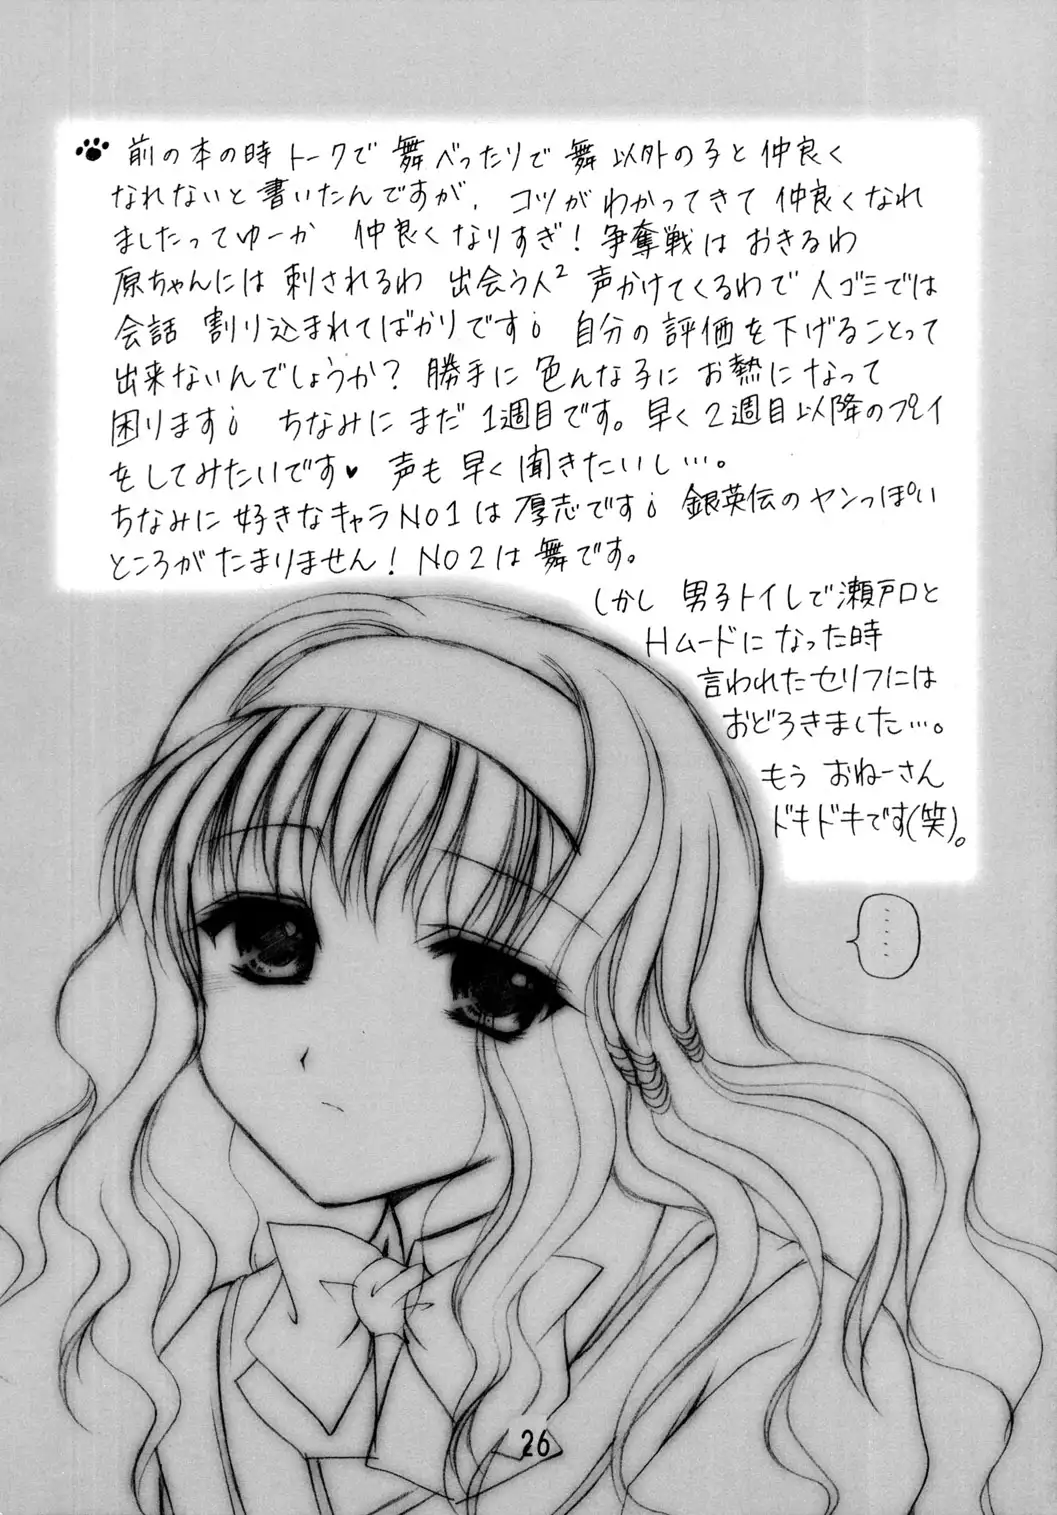 前の本の時トークで舞べったりで舞以外の子と仲良く
なれないと書いたんですが、コツがわかってきて仲良くなれ
ましたってゆーか 仲良くなりすぎ！争奪戦はおきるわ
原ちゃんには刺されるわ 出会う人² 声かけてくるわで人ゴミでは
会話 割り込まれてばかりです¡ 自分の評価を下げることって
出来ないんでしょうか？勝手に色んな子にお熱になって
困ります¡ ちなみにまだ1週目です。早く2週目以降のプレイ
をしてみたいです♥ 声も早く聞きたいし…。
ちなみに好きなキャラNO1は厚志です¡ 銀英伝のヤンっぽい
ところがたまりません！NO2は舞です。
しかし 男子トイレで瀬戸口と
Hムードになった時
言われたセリフには
おどろきました…。
もう おねーさん
ドキドキです(笑)。
……
26